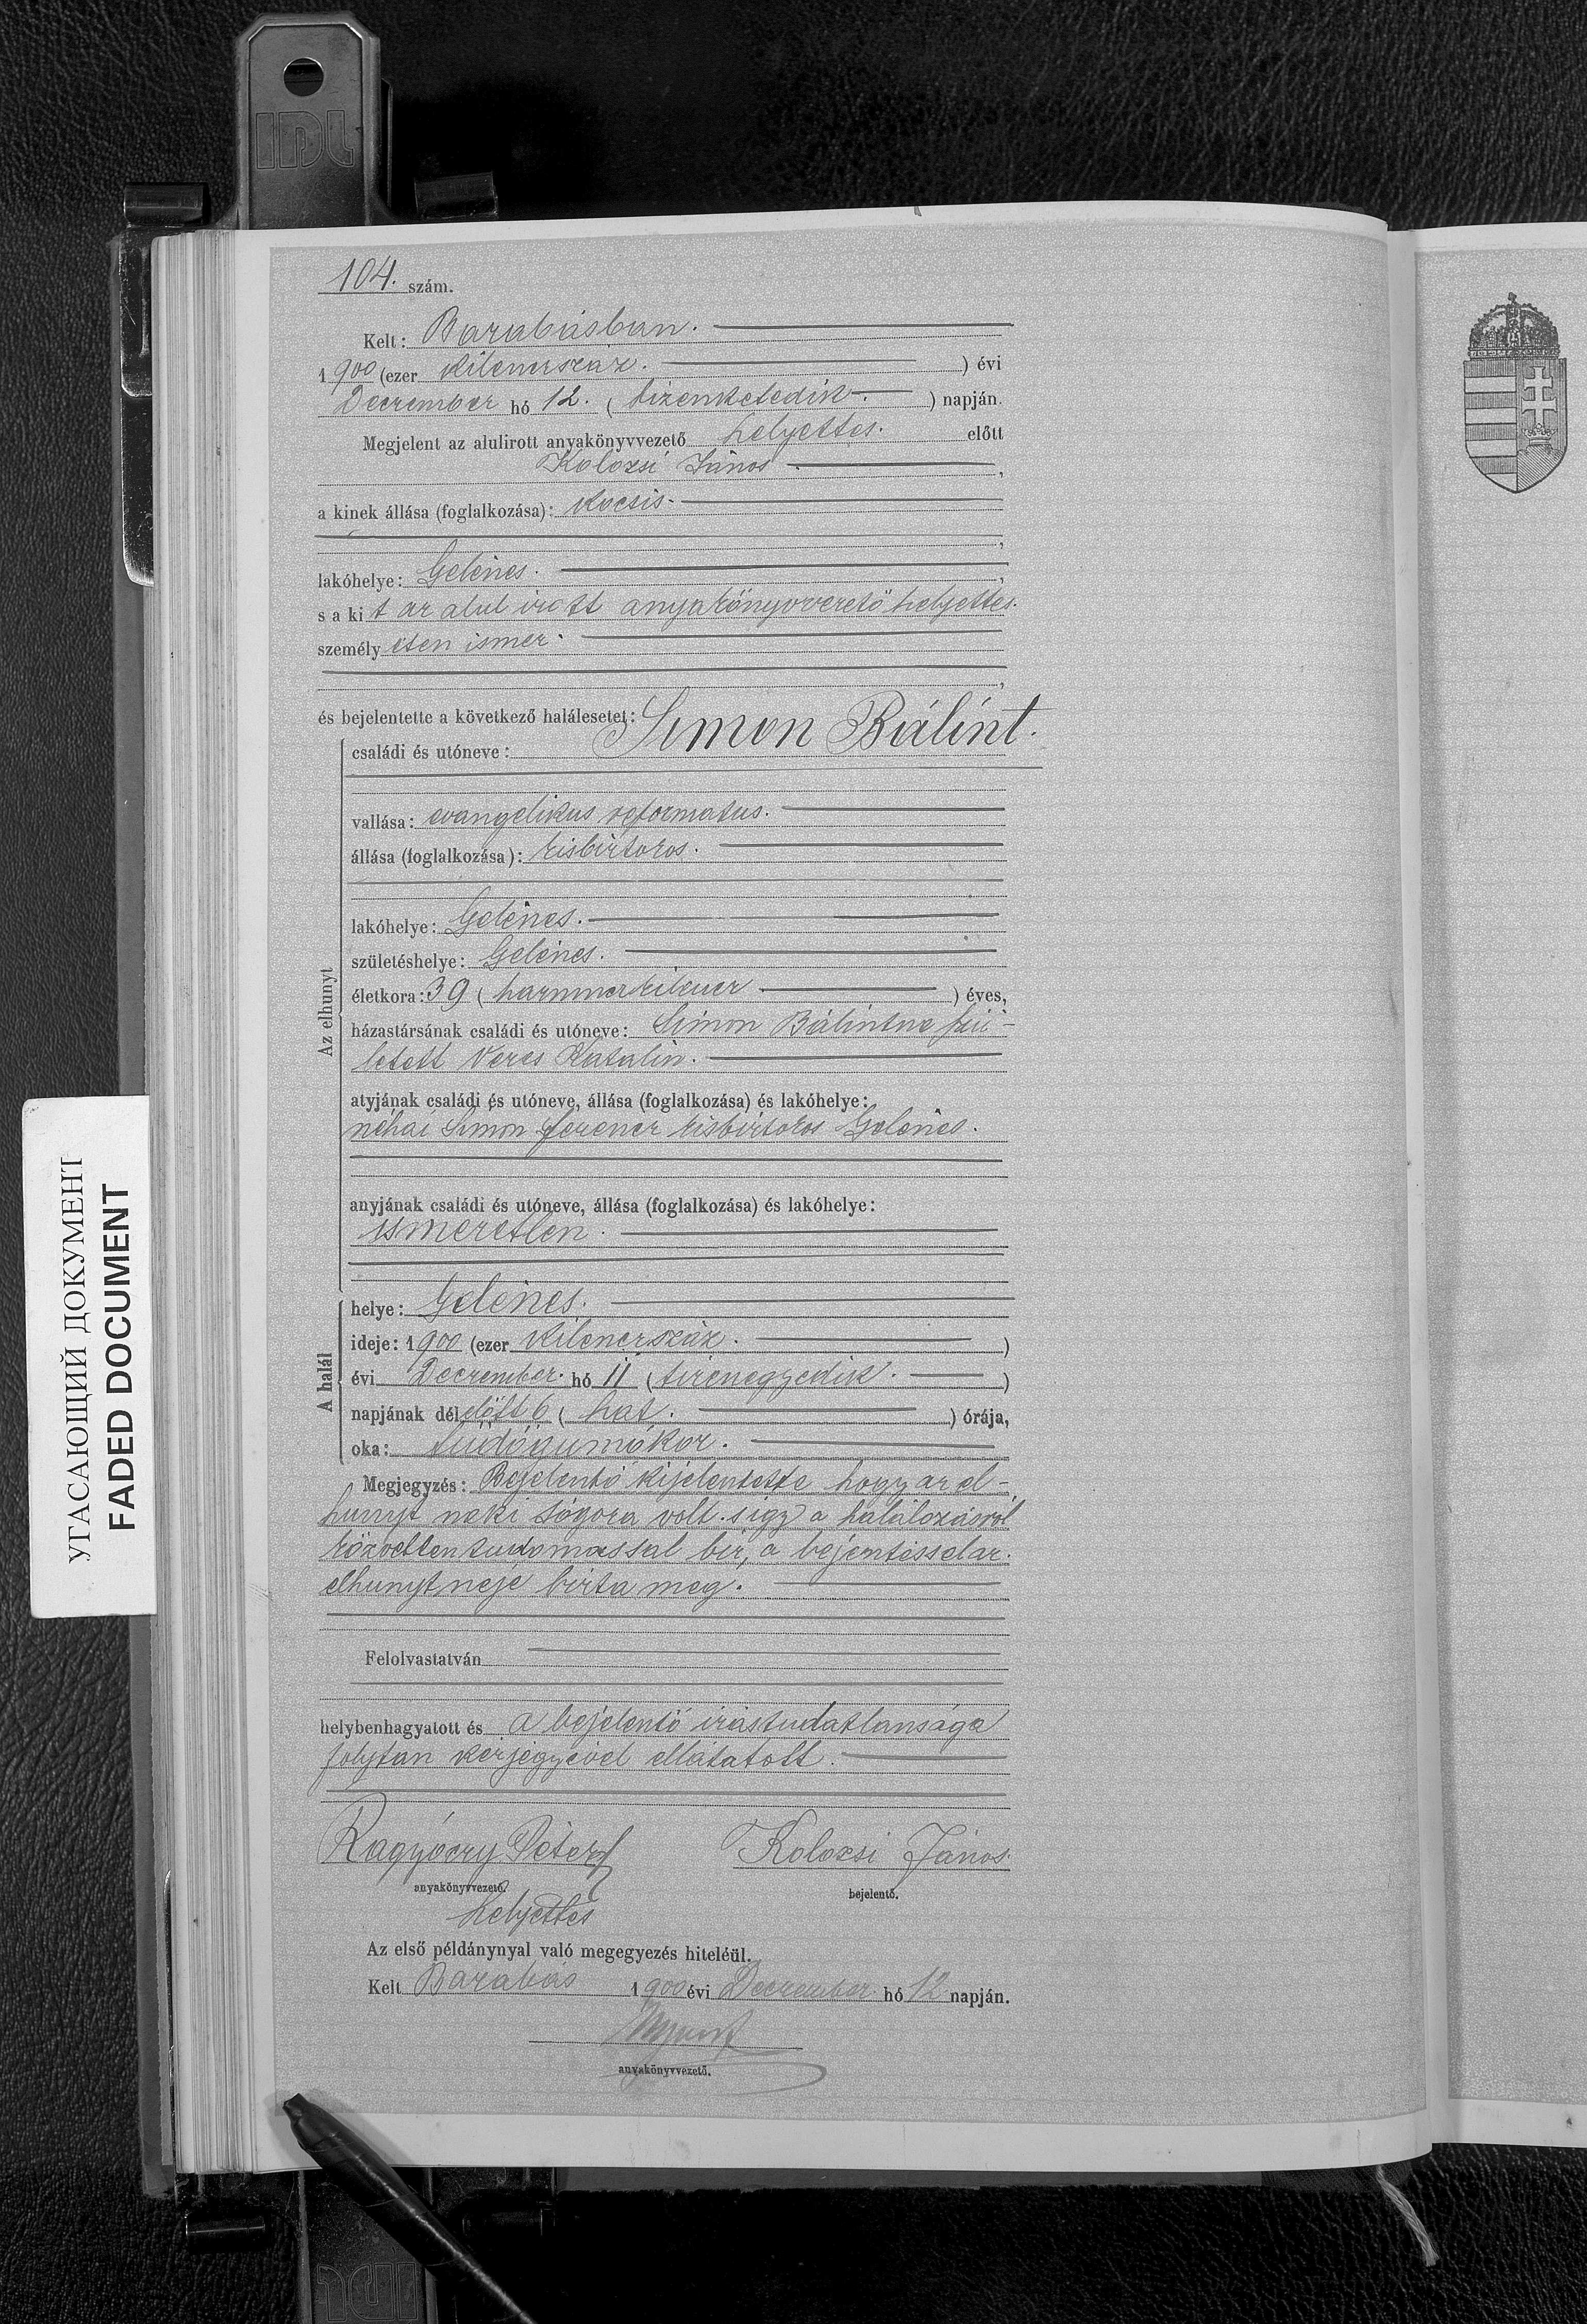 IDL
104. szám.
Kelt: Barabásban.
1900 (ezer kilenczszáz. ) évi
December hó 12. ( tizenketedik. ) napján.
Megjelent az alulirott anyakönyvvezető helyettes. előtt
Kolozsi János ,
a kinek állása (foglalkozása): kocsis.
,
lakóhelye: Gelénes. ,
s a kit az alul irott anyakönyvvezető helyettes.
személyesen ismer.
,
és bejelentette a következő halálesetet:
családi és utóneve: Simon Bálint.
vallása: evangelikus reformatus.
állása (foglalkozása): kisbirtokos.
lakóhelye: Gelénes.
születéshelye: Gelénes.
életkora: 39 ( harmincz kilencz ) éves,
házastársának családi és utóneve: Simon Bálintne szü-
letett Veres Katalin.
atyjának családi és utóneve, állása (foglalkozása) és lakóhelye:
néhai Simon Ferencz kisbirtokos Gelénes.
anyjának családi és utóneve, állása (foglalkozása) és lakóhelye:
ismeretlen.
Az elhunyt
helye: Gelénes.
ideje: 1900 (ezer kilenczszáz. )
évi December. hó 11 ( tizenegyedik. )
napjának délelőtt 6 ( hat. ) órája,
oka: tüdőgumókor.
A halál
Megjegyzés: Bejelentő kijelentette hogy az el-
hunyt neki sógora volt. s igy a halálozásról
közvetlen tudomással bir, a bejentéssel az.
elhunyt neje bizta meg.
Felolvastatván
helybenhagyatott és a bejelentő irástudatlansága
folytán kézjegyével ellátatott.
Ragyóczy Péter Kolozsi János.
anyakönyvvezető. bejelentő.
helyettes
Az első példánynyal való megegyezés hiteléül.
Kelt Barabás 1900 évi December hó 12 napján.
anyakönyvvezető.
УГАСАЮЩИЙ ДОКУМЕНТ
FADED DOCUMENT
IDL